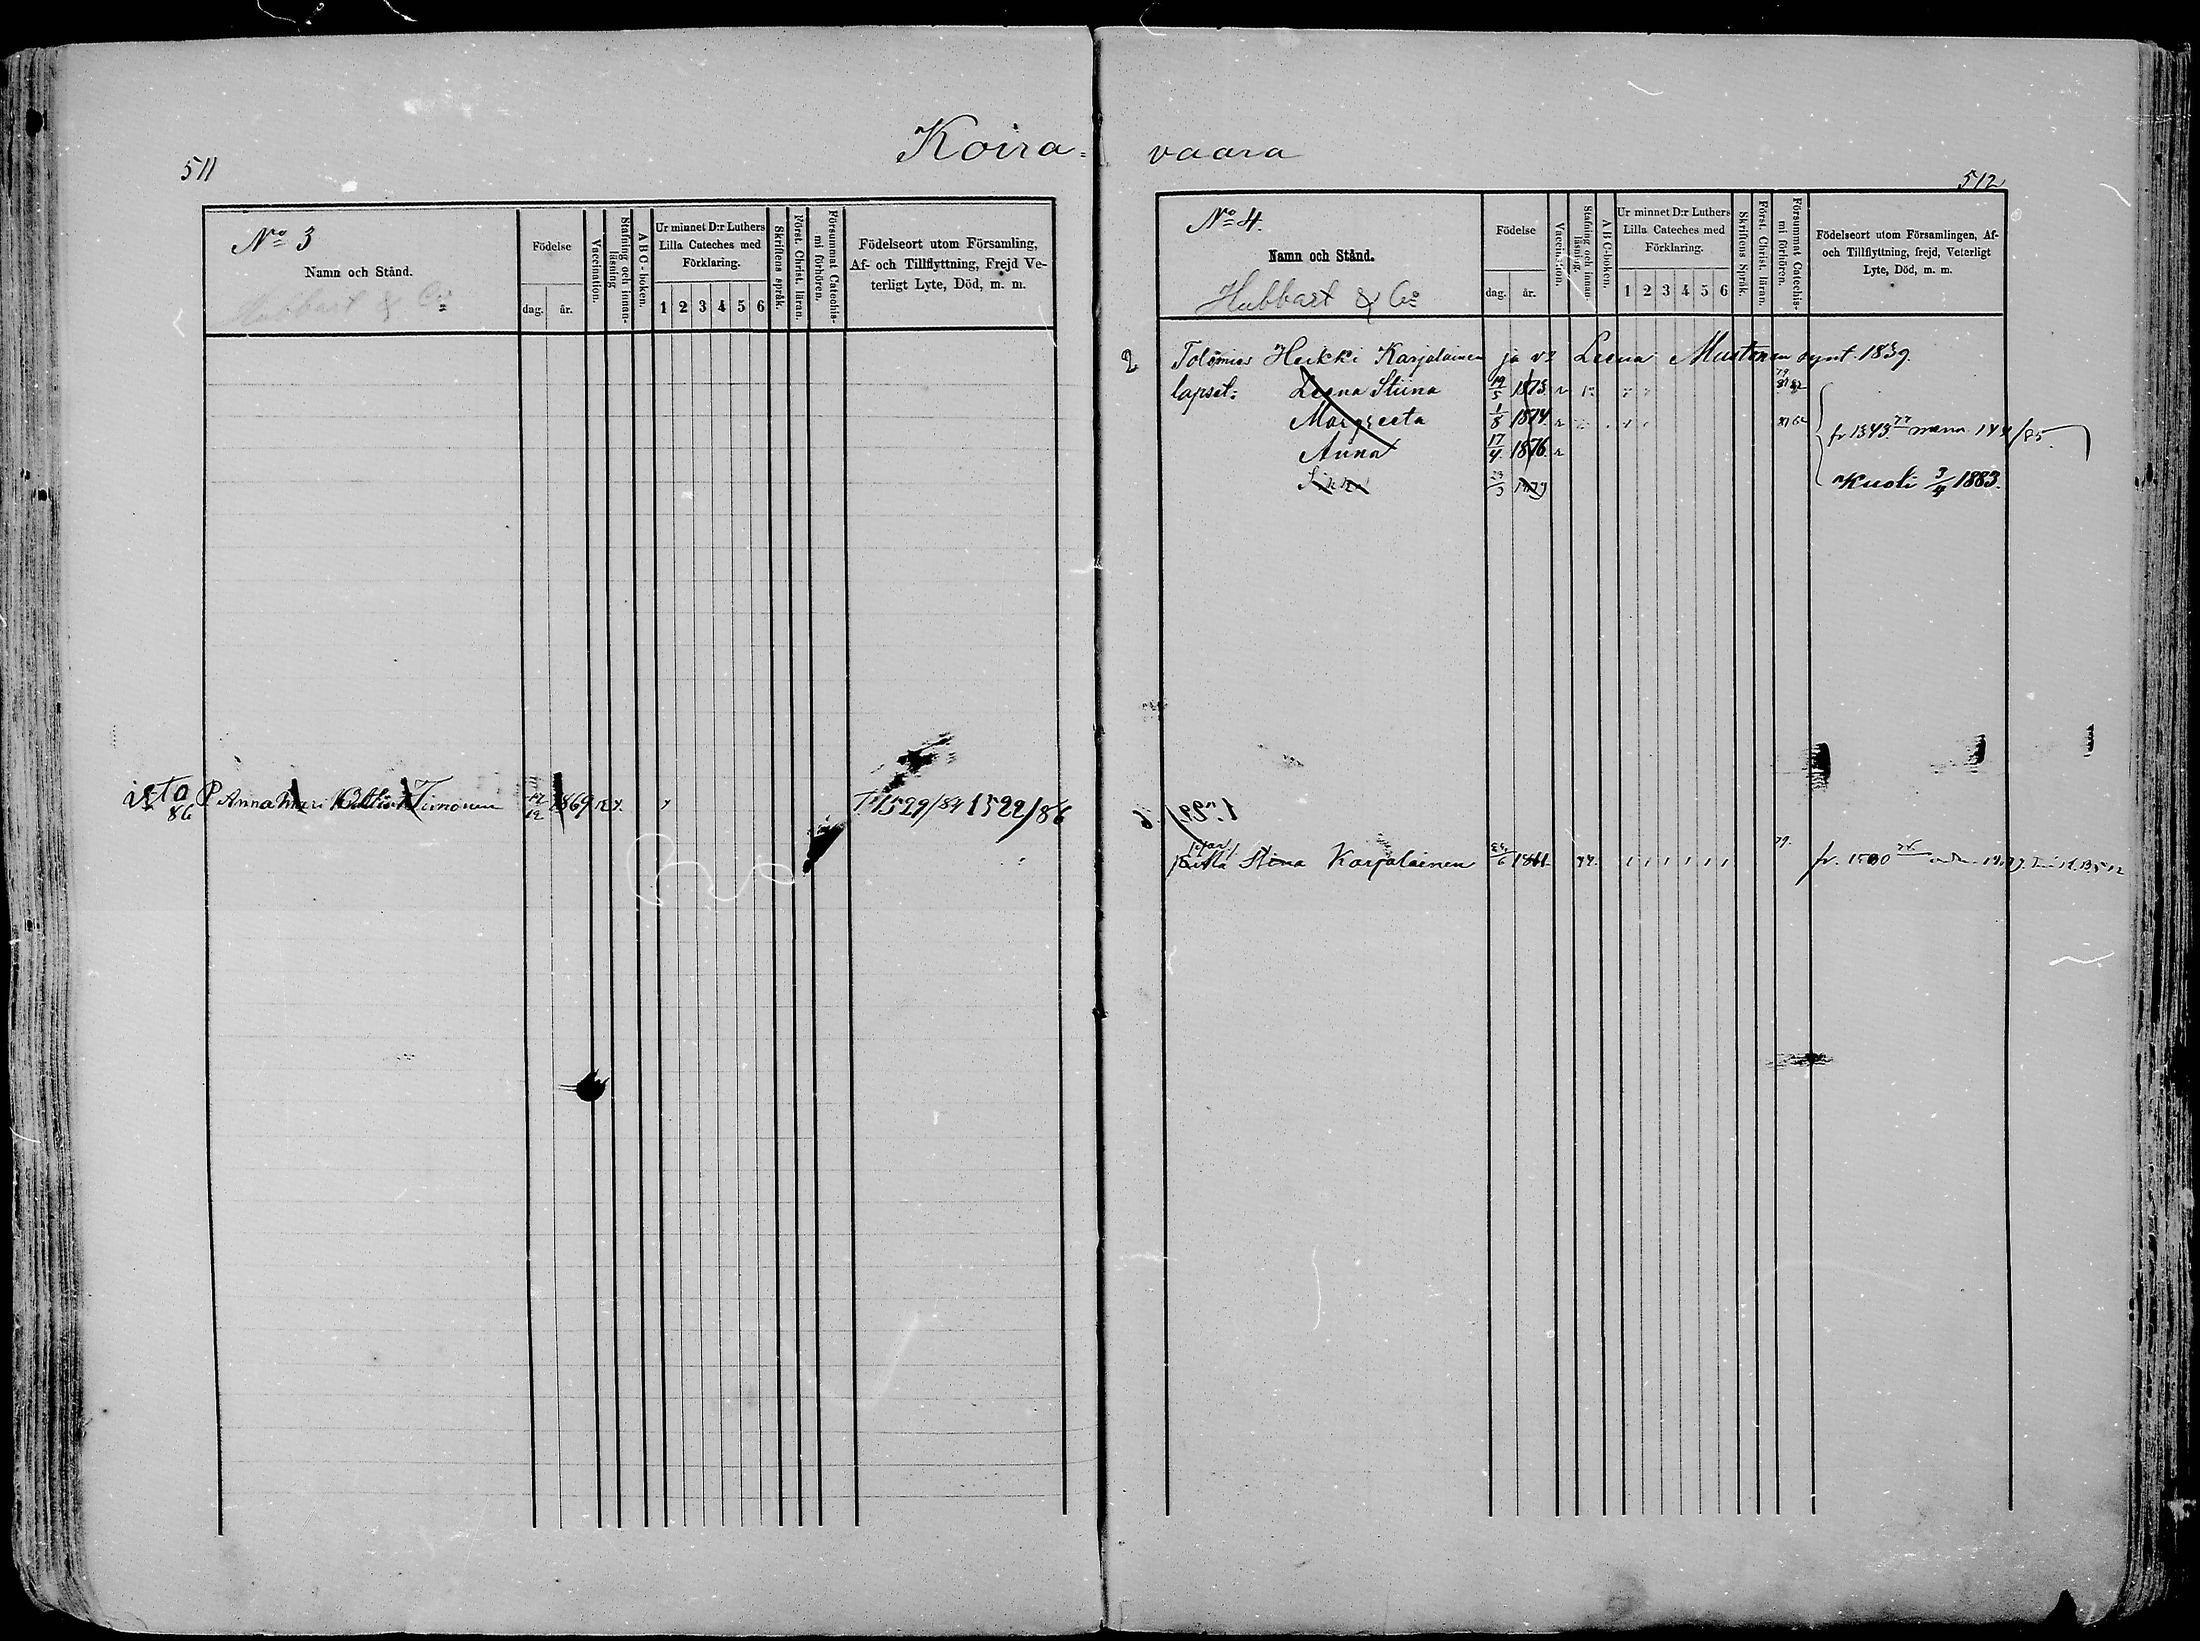 Koira-vaara
511
No 3
Namn och Stånd.
Hubbart & Co
Födelse
dag.
år.
Vaccination.
Stafning och innan-läsning
A B C - boken.
Ur minnet D:r Luthers Lilla Cateches med Förklaring.
1 2 3 4 5 6
Skriftens språk.
Först. Christ. läran.
Försummat Catechis-mi förhören.
Födelseort utom Församling,
Af- och Tillflyttning, Frejd Ve-
terligt Lyte, Död, m. m.
86 P Anna Mari Timonen 12 1869 1529/84 1522/86
512
No 4.
Namn och Stånd.
Hubbart & Co
Födelse
dag.
år.
Vaccination.
Stafning och innan-läsning.
A B C-boken.
Ur minnet D:r Luthers Lilla Cateches med Förklaring.
1 2 3 4 5 6
Skriftens Språk.
Först. Christ. läran.
Försummat Catechis-mi förhören.
Födelseort utom Församlingen, Af-
och Tillflyttning, frejd, Veterligt
Lyte, Död, m. m.
2 Heikki Karjalainen ja v? Leena Mustonen synt. 1839.
lapset: Leena Stiina 19/5 1873
Margreeta 1/8 1874 fr 1343 77 /85
Anna 17/4 1876
Kuoli 3/4 1883.
Stina Karjalainen 6 1861. fr.